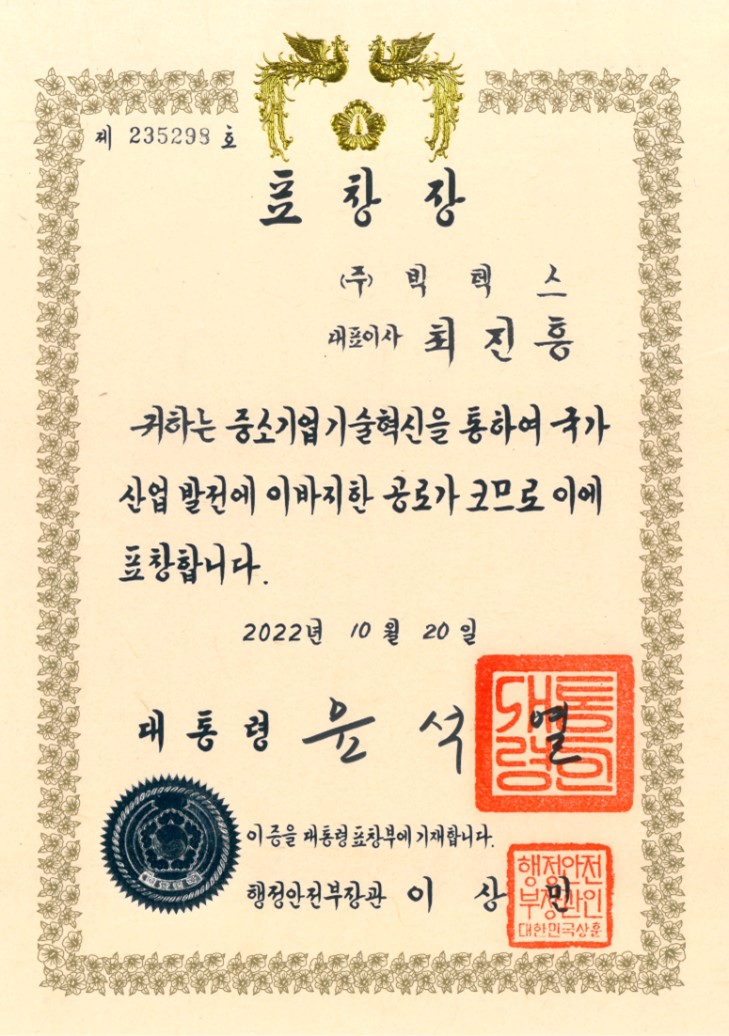 제 235298 호
표창장
(주) 빅텍스
대표이사 최진흥
귀하는 중소기업기술혁신을 통하여 국가
산업 발전에 이바지한 공로가 크므로 이에
표창합니다.
2022년 10월 20일
대통령 윤석열
대통령인
이 증을 대통령표창부에 기재합니다.
행정안전부장관 이상민
행정안전
부장관인
대한민국상훈